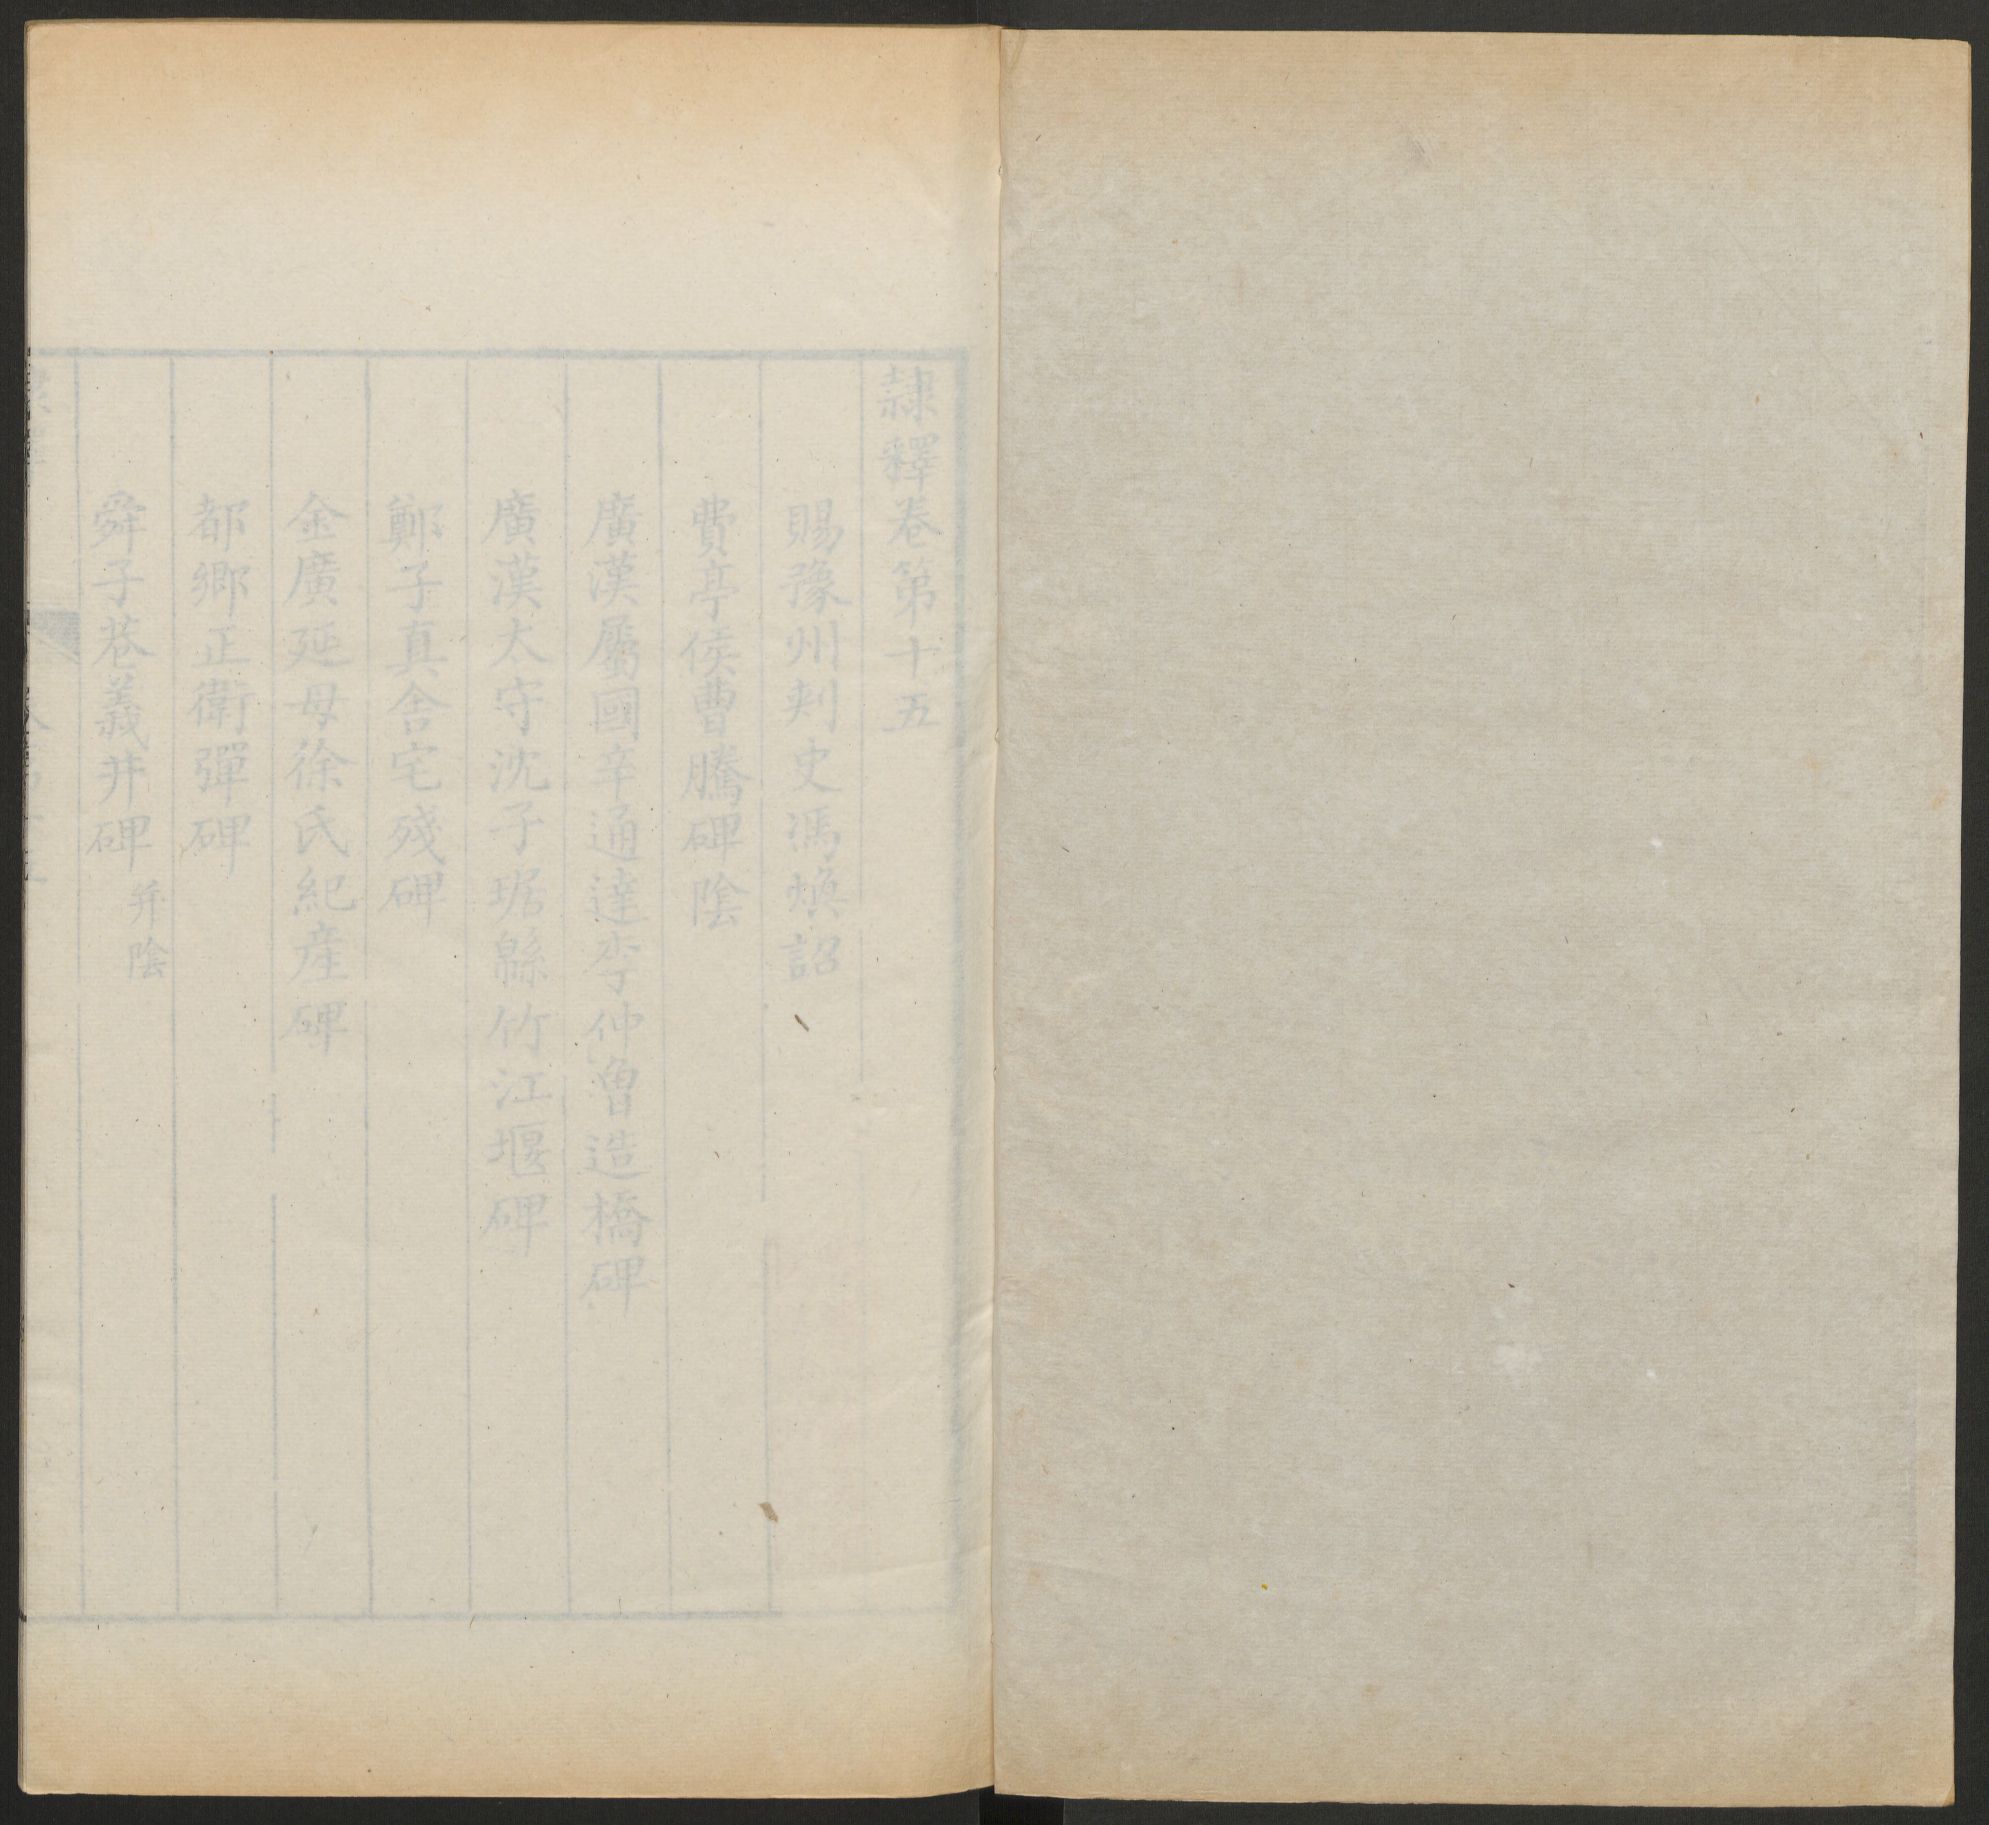 隷釋卷第十五
賜豫州刺史馮煥詔
費亭侯曹騰碑陰
廣漢屬國辛通達李仲曾造橋碑
廣漢太守沈子琚緜竹江堰碑
鄭子真舍宅殘碑
金廣延母徐氏紀產碑
都鄉正衛彈碑
舜子巷義井碑 并陰